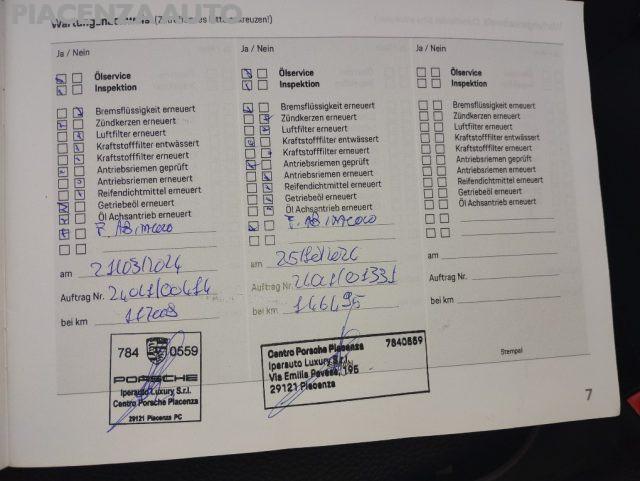 PIACENZA AUTO
Wartungsnachweis (Zutreffendes bitte ankreuzen!)
Ja / Nein
Ölservice
Inspektion
Bremsflüssigkeit erneuert
Zündkerzen erneuert
Luftfilter erneuert
Kraftstofffilter entwässert
Kraftstofffilter erneuert
Antriebsriemen geprüft
Antriebsriemen erneuert
Reifendichtmittel erneuert
Getriebeöl erneuert
Öl Achsantrieb erneuert
am 21/03/2024
Auftrag Nr. 2401/00414
bei km 117008
784 0559
PORSCHE
Iperauto Luxury S.r.l.
Centro Porsche Piacenza
29121 Piacenza PC
Ja / Nein
Ölservice
Inspektion
Bremsflüssigkeit erneuert
Zündkerzen erneuert
Luftfilter erneuert
Kraftstofffilter entwässert
Kraftstofffilter erneuert
Antriebsriemen geprüft
Antriebsriemen erneuert
Reifendichtmittel erneuert
Getriebeöl erneuert
Öl Achsantrieb erneuert
am
Auftrag Nr. 2401/01331
bei km 146495
Centro Porsche Piacenza 7840559
Iperauto Luxury S.r.l.
Via Emilia Pavese, 195
29121 Piacenza
Ja / Nein
Ölservice
Inspektion
Bremsflüssigkeit erneuert
Zündkerzen erneuert
Luftfilter erneuert
Kraftstofffilter entwässert
Kraftstofffilter erneuert
Antriebsriemen geprüft
Antriebsriemen erneuert
Reifendichtmittel erneuert
Getriebeöl erneuert
Öl Achsantrieb erneuert
am
Auftrag Nr.
bei km
Stempel
7